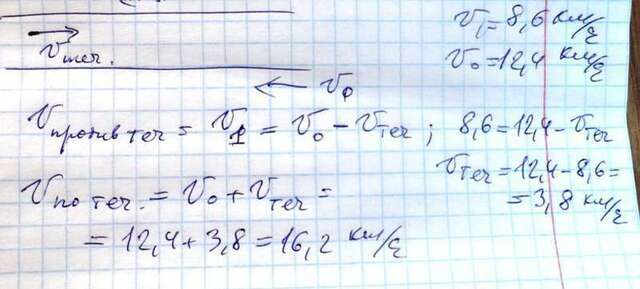 v₁ = 8,6 км/ч
v₀ = 12,4 км/ч
v теч.
v₀
v против теч = v₁ = v₀ − v теч ; 8,6 = 12,4 − v теч
v теч = 12,4 − 8,6 =
= 3,8 км/ч
v по теч. = v₀ + v теч =
= 12,4 + 3,8 = 16,2 км/ч